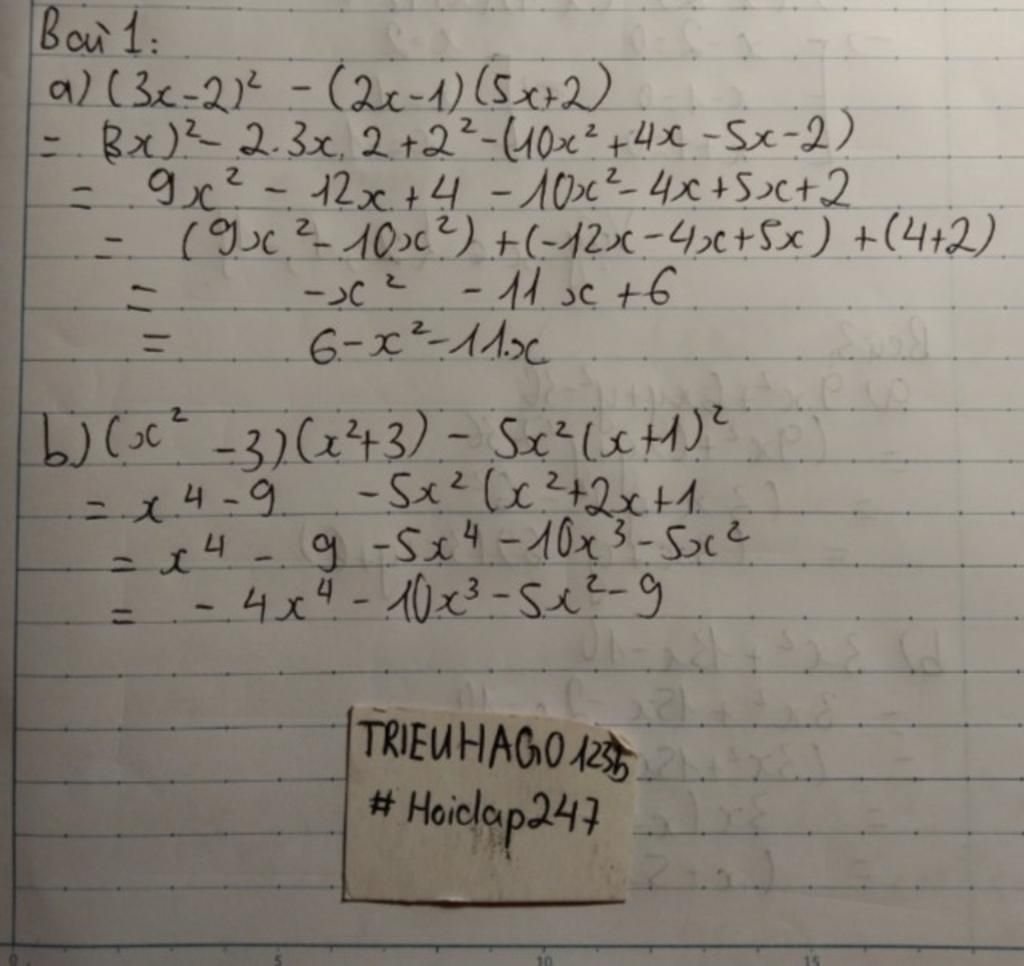 Bài 1:
a) (3x-2)² - (2x-1)(5x+2)
= (3x)² - 2.3x.2+2²-(10x²+4x-5x-2)
= 9x² - 12x+4 - 10x²-4x+5x+2
= (9x²-10x²)+(-12x-4x+5x)+(4+2)
= -x² -11x+6
= 6-x²-11x
b) (x² -3)(x²+3) - 5x²(x+1)²
= x⁴-9 -5x²(x²+2x+1
= x⁴ - 9 -5x⁴-10x³-5x²
= - 4x⁴-10x³-5x²-9
TRIEUHAGO
# Hoidap247
0 5 10 15